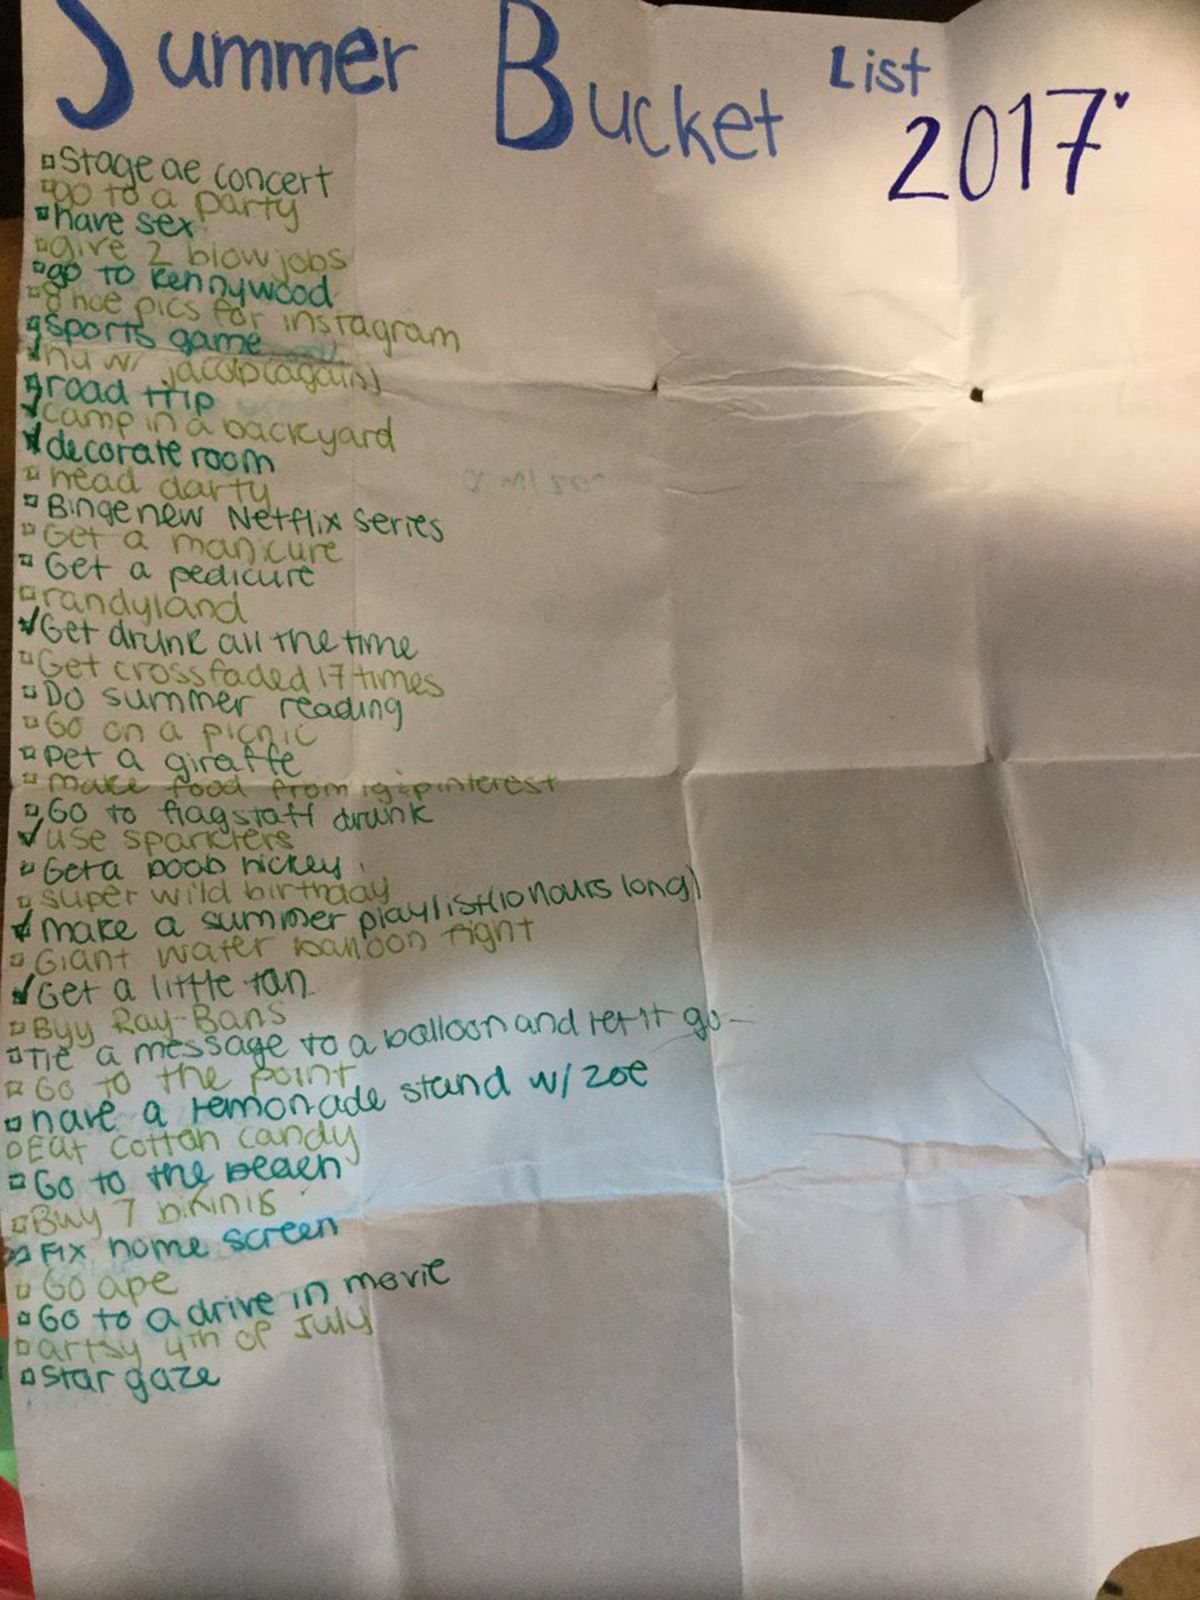 Summer Bucket List
2017
Stage ae concert
go to a party
have sex
give 2 blow jobs
go to Kennywood
pics for instagram
sports game
w/ jacob (again)
road trip
camp in a backyard
decorate room
head darty
Binge new Netflix series
Get a manicure
Get a pedicure
randyland
Get drunk all the time
Get crossfaded 17 times
Do summer reading
Go on a picnic
pet a giraffe
make food from ig & pinterest
Go to flagstaff drunk
use sparklers
Get a boob hickey
super wild birthday
make a summer playlist (10 hours long)
Giant water balloon fight
Get a little tan
Buy Ray-Bans
Tie a message to a balloon and let it go
Go to the point
have a lemonade stand w/ zoe
Eat cotton candy
Go to the beach
Buy 7 bikinis
Fix home screen
Go ape
Go to a drive in movie
artsy 4th of July
star gaze